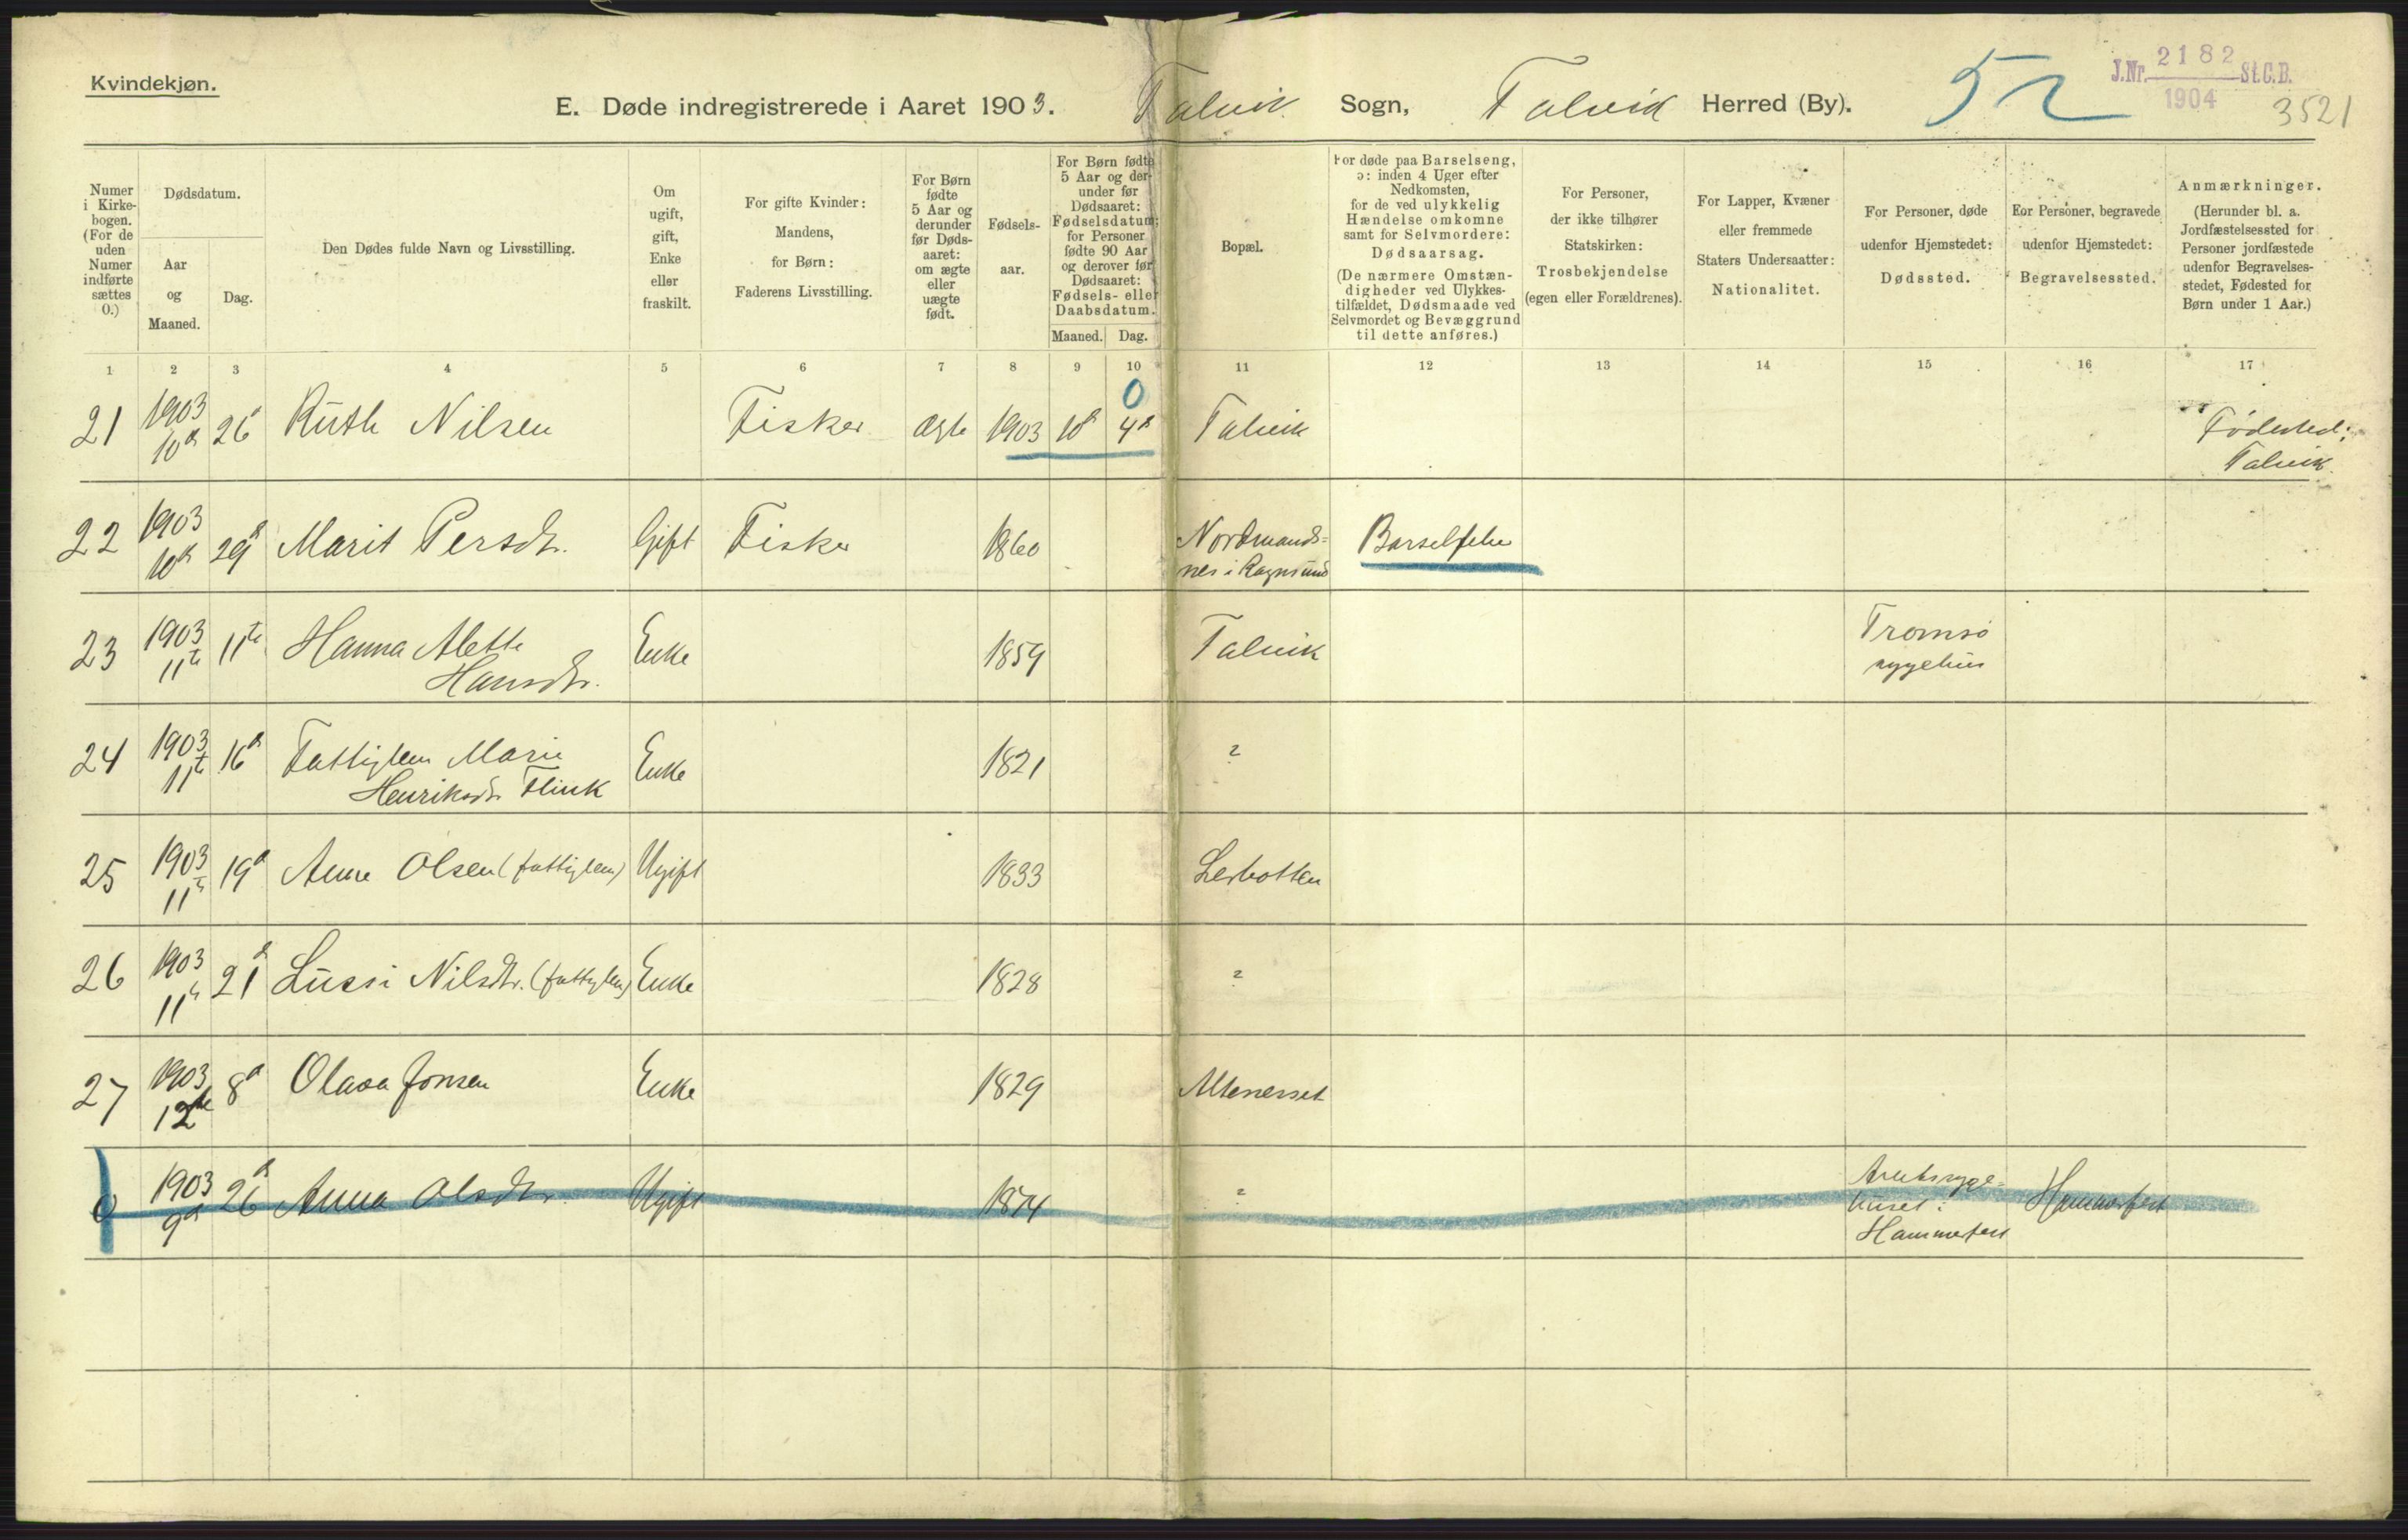 Kvindekjøn.
E. Døde indregistrerede i Aaret 1903. Talvik Sogn, Talvik Herred (By). 52
J.Nr. 2182 St.C.B.
1904
3521
Numer i Kirkebogen. (For de uden Numer indførte sættes 0.)
Dødsdatum.
Aar og Maaned.
Dag.
Den Dødes fulde Navn og Livsstilling.
Om ugift, gift, Enke eller fraskilt.
For gifte Kvinder: Mandens, for Børn: Faderens Livsstilling.
For Børn fødte 5 Aar og derunder før Dødsaaret: om ægte eller uægte født.
Fødselsaar.
For Børn fødte 5 Aar og derunder før Dødsaaret: Fødselsdatum; for Personer fødte 90 Aar og derover før Dødsaaret: Fødsels- eller Daabsdatum.
Maaned. Dag.
Bopæl.
For døde paa Barselseng, ɔ: inden 4 Uger efter Nedkomsten, for de ved ulykkelig Hændelse omkomne samt for Selvmordere: Dødsaarsag. (De nærmere Omstændigheder ved Ulykkestilfældet, Dødsmaade ved Selvmordet og Bevæggrund til dette anføres.)
For Personer, der ikke tilhører Statskirken: Trosbekjendelse (egen eller Forældrenes).
For Lapper, Kvæner eller fremmede Staters Undersaatter: Nationalitet.
For Personer, døde udenfor Hjemstedet: Dødssted.
For Personer, begravede udenfor Hjemstedet: Begravelsessted.
Anmærkninger. (Herunder bl. a. Jordfæstelsessted for Personer jordfæstede udenfor Begravelsesstedet, Fødested for Børn under 1 Aar.)
1 2 3 4 5 6 7 8 9 10 11 12 13 14 15 16 17
0
21 1903 10d 26d Ruth Nilsen Fisker Ægte 1903 10d 4d Talvik Fødested: Talvik
22 1903 10d 29d Marit Persdtr. Gift Fisker 1860 Nordmandsnes i Rognsund Barselfeber
23 1903 11te 11te Hanna Alette Hansdtr. Enke 1859 Talvik Tromsø sygehus
24 1903 11te 16d Fattiglem Marie Henriksdtr Flink Enke 1821 ?
25 1903 11te 19d Anne Olsen (fattiglem) Ugift 1833 Lerbotten
26 1903 11te 21d Lussi Nilsdtr. (fattiglem) Enke 1828 ?
27 1903 12te 8d Olava Jonsen Enke 1829 Altenesset
0 1903 9d 26d Anna Olsdtr. Ugift 1874 ? Amtssygehuset i Hammerfest Hammerfest